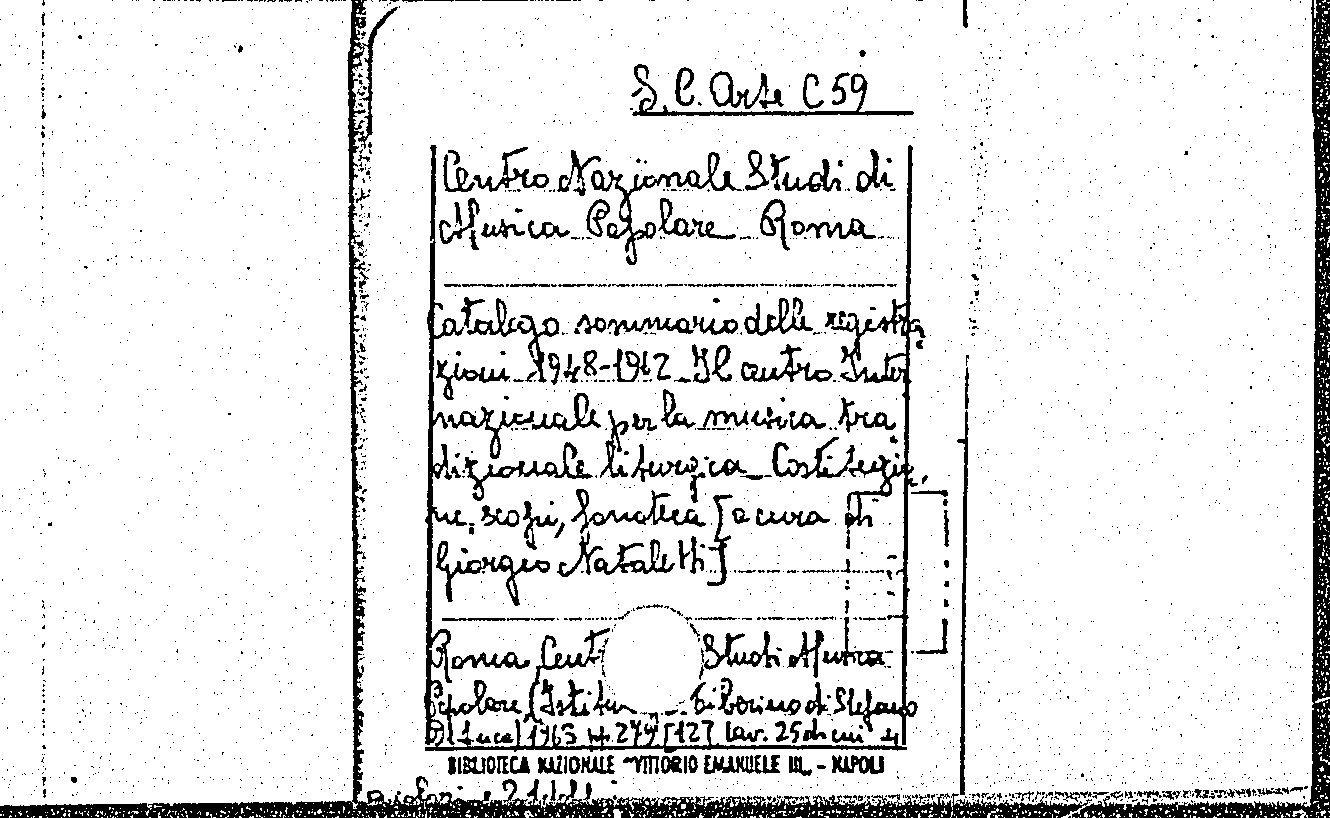 S.C. Arte C 59
Centro Nazionale Studi di
Musica Popolare Roma
Catalogo sommario delle registra
zioni 1948-1962 Il centro Inter
nazionale per la musica tra
dizionale liturgica Costituzio
ne, scopi, fonoteca [a cura di
Giorgio Nataletti]
Roma, Cent Studi Musica
Popolare, (Istitu Tiberino di Stefano
De Luca) 1963 pp. 279 [12] tav. 25 di cui 4
BIBLIOTECA NAZIONALE "VITTORIO EMANUELE III" - NAPOLI